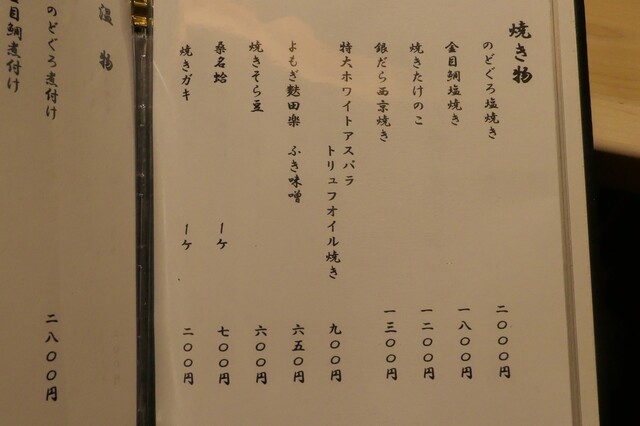 焼き物
のどぐろ塩焼き 二〇〇〇円
金目鯛塩焼き 一八〇〇円
焼きたけのこ 一二〇〇円
銀だら西京焼き 一三〇〇円
特大ホワイトアスパラ
トリュフオイル焼き 九〇〇円
よもぎ麩田楽 ふき味噌 六五〇円
焼きそら豆 六〇〇円
桑名蛤 一ケ 七〇〇円
焼きガキ 一ケ 二〇〇円
温物
のどぐろ煮付け 二八〇〇円
目鯛煮付け